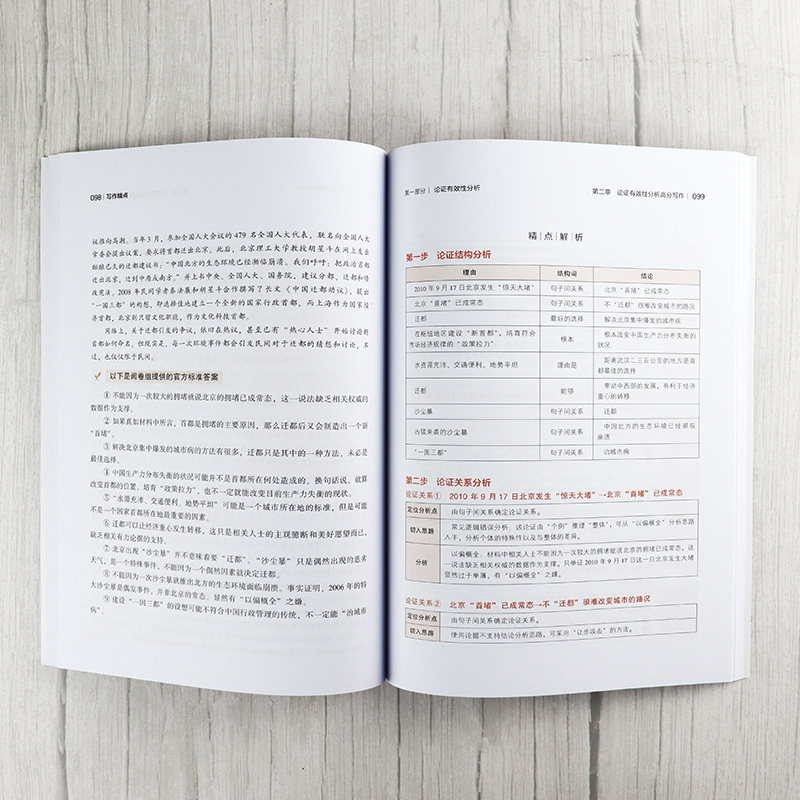 098 写作精点
议推向高潮。当年3月，参加全国人大会议的479名全国人大代表，联名向全国人大
常委会提出议案，要求将首都迁出北京。此后，北京理工大学教授胡星斗在网上发出
酝酿已久的迁都建议书：“中国北方的生态环境已经濒临崩溃。我们呼吁：把政治首都
迁出北京，迁到中原或南方。”并上书中央、全国人大、国务院，建议分都，迁都和修
改宪法。2008年民间学者秦法展和胡星斗合作撰写了长文《中国迁都动议》，提出
“一国三都”的构想，即选择佳地建立一个全新的国家行政首都，而上海作为国家经
济首都，北京则只留文化职能，作为文化科技首都。
网络上，关于迁都引发的争议，依旧在热议，甚至已有“热心人士”开始讨论新
首都如何命名。但现实是，每一次环境事件都会引发民间对于迁都的猜想和讨论，不
过，也仅仅限于民间。
以下是阅卷组提供的官方标准答案
①不能因为一次较大的拥堵就说北京的拥堵已成常态，这一说法缺乏相关权威的
数据作为支撑。
②如果真如材料中所言，首都是拥堵的主要原因，那么迁都后又会制造出一个新
“首堵”。
③解决北京集中爆发的城市病的方法有很多，迁都只是其中的一种方法，未必是
最佳选择。
④中国生产力分布失衡的状况可能并不是首都所在何处造成的。换句话说，就算
改变首都的位置，培育“政策拉力”，也不一定就能改变目前生产力失衡的现状。
⑤“水源充沛、交通便利、地势平坦”可能是一个城市所在地的标准，但是可能
不是一个国家首都所在地最重要的因素。
⑥迁都可以让经济重心发生转移，这只是相关人士的主观臆断和美好愿望而已，
缺乏相关有力论据的支持。
⑦北京出现“沙尘暴”并不意味着要“迁都”。“沙尘暴”只是偶然出现的恶劣
天气，是一个特殊事件，不能因为一个偶然因素就决定迁都。
⑧不能因为一次沙尘暴就推出北方的生态环境面临崩溃。事实证明，2006年的特
大沙尘暴是偶发事件，并非北京的常态。显然有“以偏概全”之嫌。
⑨建设“一国三都”的设想可能不符合中国行政管理的传统，不一定能“治城市
病”。
第一部分 论证有效性分析
第二章 论证有效性分析高分写作 099
精 点 解 析
第一步 论证结构分析
理由 结构词 结论
2010年9月17日北京发生“惊天大堵” 句子间关系 北京“首堵”已成常态
北京“首堵”已成常态 句子间关系 不“迁都”很难改变城市的路况
迁都 最好的选择 解决北京集中爆发的城市病
在枢纽地区建设“新首都”，培育符合
市场经济规律的“政策拉力” 根本 根本改变中国生产力分布失衡的
状况
水资源充沛、交通便利、地势平坦 理由是 距离武汉二三百公里的地方是首
都最佳的选择
迁都 能够 带动中西部的发展，有利于经济
重心的转移
沙尘暴 句子间关系 迁都
凶猛来袭的沙尘暴 句子间关系 中国北方的生态环境已经濒临
崩溃
“一国三都” 句子间关系 治城市病
第二步 论证关系分析
论证关系① 2010年9月17日北京发生“惊天大堵”→北京“首堵”已成常态
定位分析点 由句子间关系确定论证关系。
切入思路 常见逻辑错误分析，该论证由“个例”推理“整体”，可从“以偏概全”分析思路
入手，分析个体的特殊性以及与整体的差异。
分析 以偏概全，材料中相关人士不能因为一次较大的拥堵就说北京的拥堵已成常态，这
一说法缺乏相关权威的数据作为支撑。只举证2010年9月17日这一日北京发生大堵
显然过于单薄，有“以偏概全”之嫌。
论证关系② 北京“首堵”已成常态→不“迁都”很难改变城市的路况
定位分析点 由句子间关系确定论证关系。
切入思路 使用论据不支持结论分析思路，可采用“让步攻击”的方法。